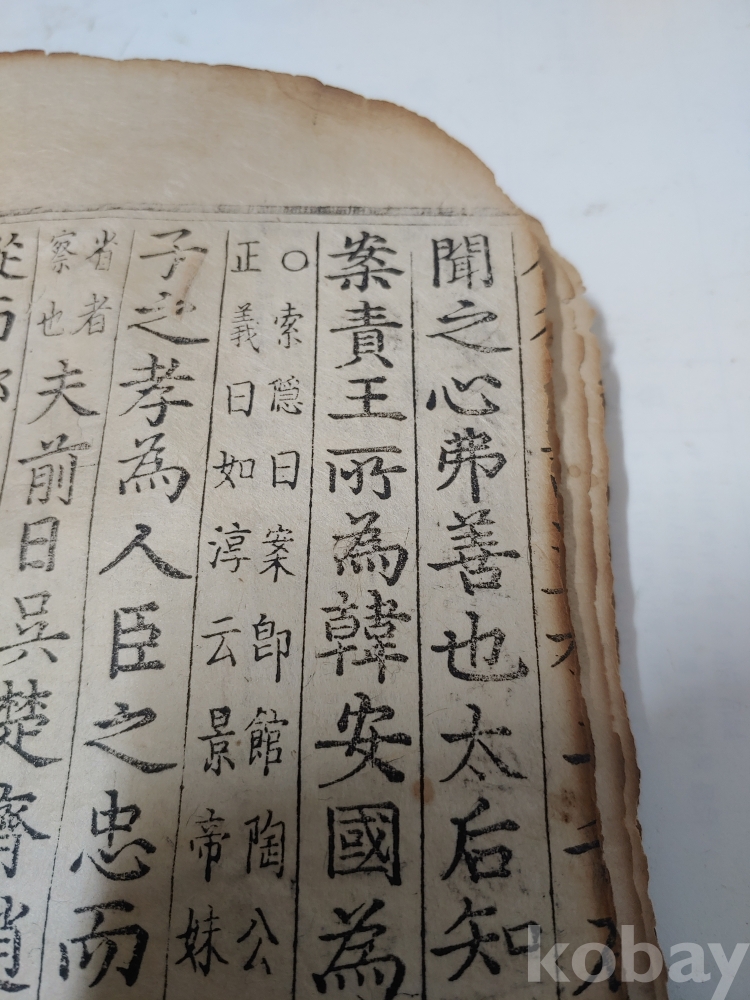 聞之心弗善也太后知
案責王所為韓安國為
〇索隱曰案即館陶公
正義曰如淳云景帝妹
子之孝為人臣之忠而
省者
察也
夫前日吳楚齊趙
kobay